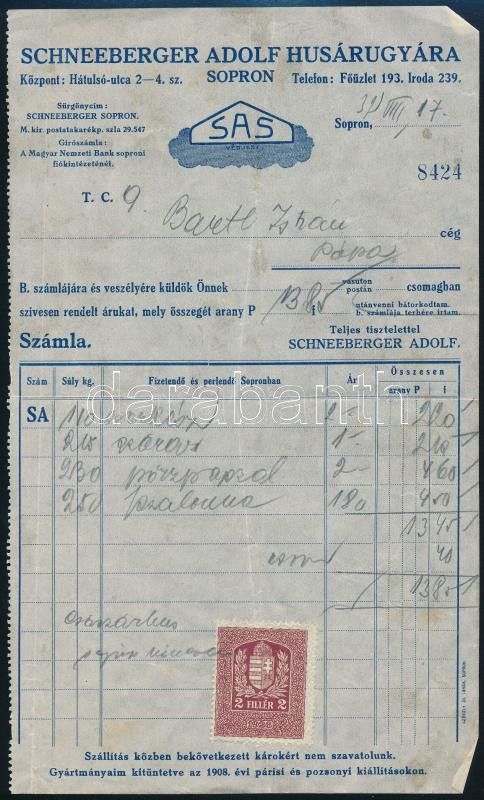 SCHNEEBERGER ADOLF HUSÁRUGYÁRA
Központ: Hátulsó-utca 2—4. sz. SOPRON Telefon: Főüzlet 193. Iroda 239.
Sürgönycim:
SCHNEEBERGER SOPRON.
M. kir. postatakarékp. szla 29.547
Girószámla:
A Magyar Nemzeti Bank soproni
fiókintézeténél.
SAS
VÉDJEGY
Sopron, 32/III/17.
8424
T. C. 9
Bartl István
cég
Pápa
B. számlájára és veszélyére küldök Önnek vasuton postán csomagban
szivesen rendelt árukat, mely összegét arany P 13.85 utánvenni bátorkodtam.
b. számlája terhére irtam.
Teljes tisztelettel
Számla. SCHNEEBERGER ADOLF.
Szám Súly kg. Fizetendő és perlendő Sopronban Ár Összesen
arany P f
SA 110 2- 220
210 1- 210
230 2- 460
250 szalonna 180 450
1345
40
1385
2 FILLÉR 2
Szállítás közben bekövetkezett károkért nem szavatolunk.
Gyártmányaim kitüntetve az 1908. évi párisi és pozsonyi kiállításokon.
darabanth